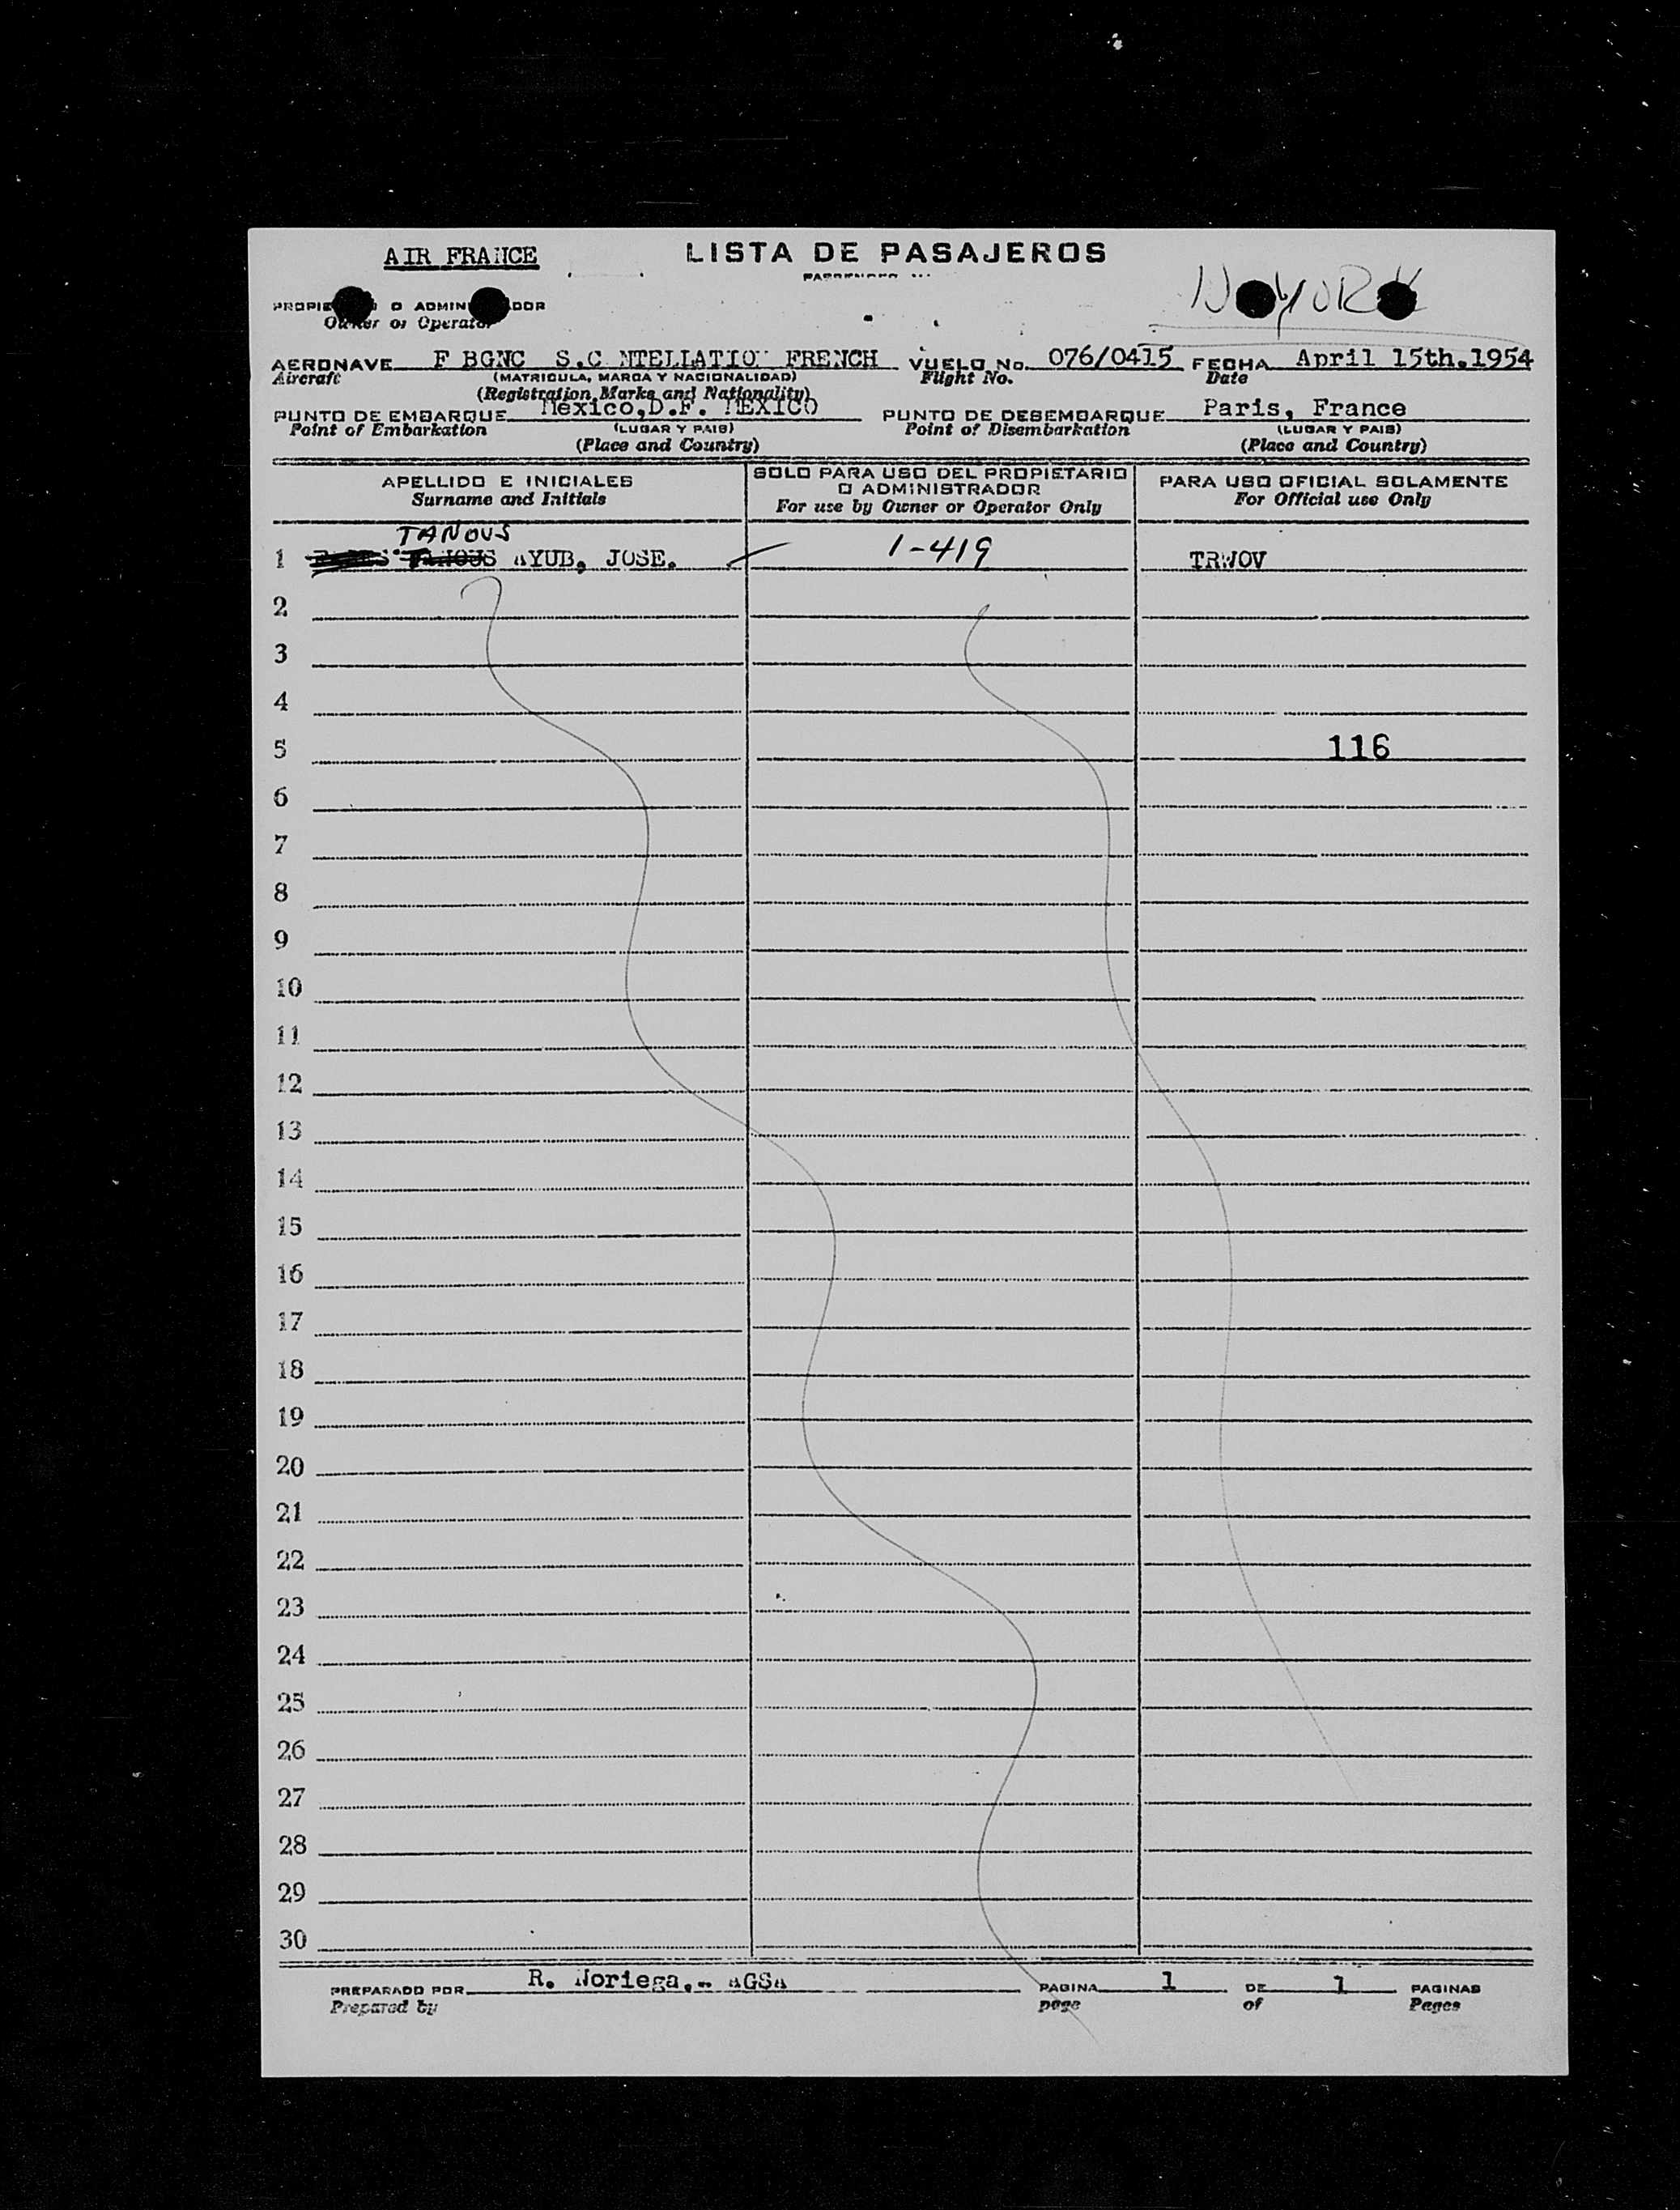 AIR FRANCE
LISTA DE PASAJEROS
N YORK
Owner or Operator
AERONAVE F BGNC S.C NTELLATIO FRENCH VUELO No. 076/0415 FECHA April 15th.1954
Aircraft (MATRICULA, MARCA Y NACIONALIDAD) Flight No. Date
(Registration Marks and Nationality)
PUNTO DE EMBARQUE Mexico,D.F. MEXICO PUNTO DE DESEMBARQUE Paris, France
Point of Embarkation (LUGAR Y PAIS) Point of Disembarkation (LUGAR Y PAIS)
(Place and Country) (Place and Country)
APELLIDO E INICIALES
Surname and Initials
SOLO PARA USO DEL PROPIETARIO
O ADMINISTRADOR
For use by Owner or Operator Only
PARA USO OFICIAL SOLAMENTE
For Official use Only
TANOUS
1 TANOUS AYUB, JOSE. 1-419 TRWOV
2
3
4
5 116
6
7
8
9
10
11
12
13
14
15
16
17
18
19
20
21
22
23
24
25
26
27
28
29
30
PREPARADO POR R. Noriega.- AGSA PAGINA 1 DE 1 PAGINAS
Prepared by page of Pages